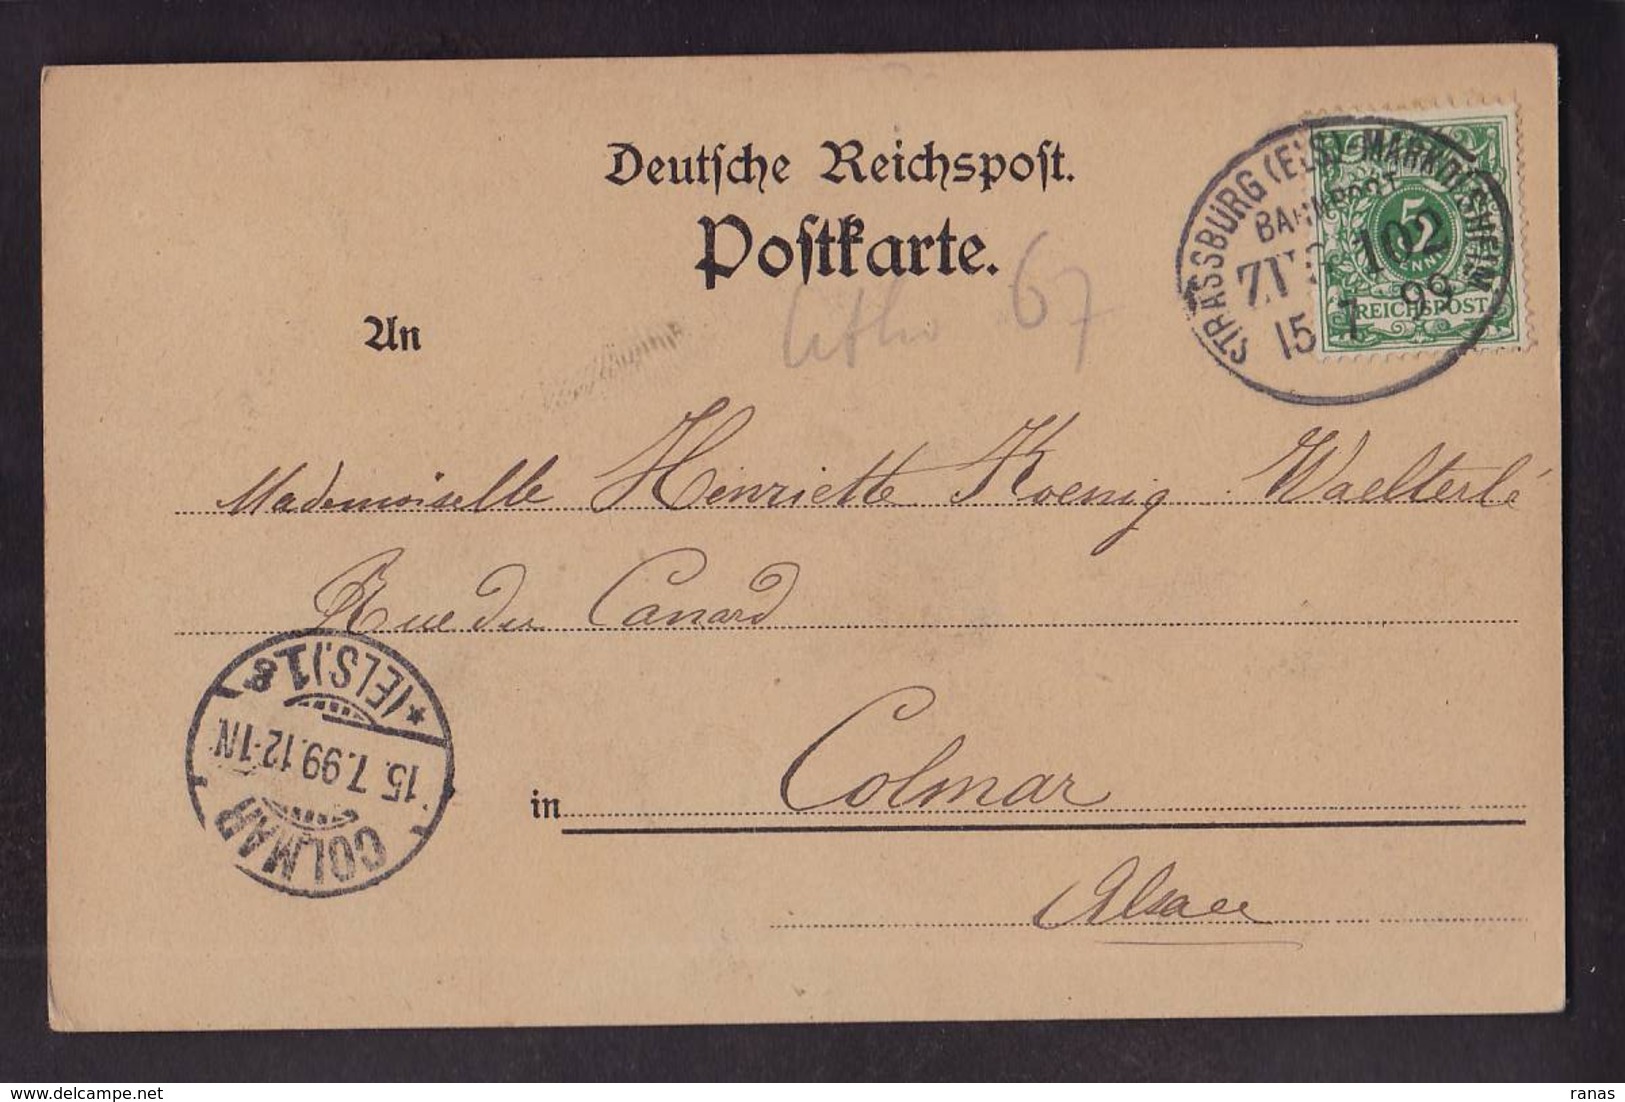 Deutsche Reichspost.
Postkarte.
Litho 67
An
STRASSBURG (ELS)-MARKOLSHEIM
BAHNPOST
ZUG 102
15 7 99
5
REICHSPOST
Mademoiselle Henriette Koenig Waelterlé
Rue du Canard
in Colmar
Alsace
COLMAR
15. 7. 99. 12-1N.
* (ELS.) 1 g
delcampe.net
ranas